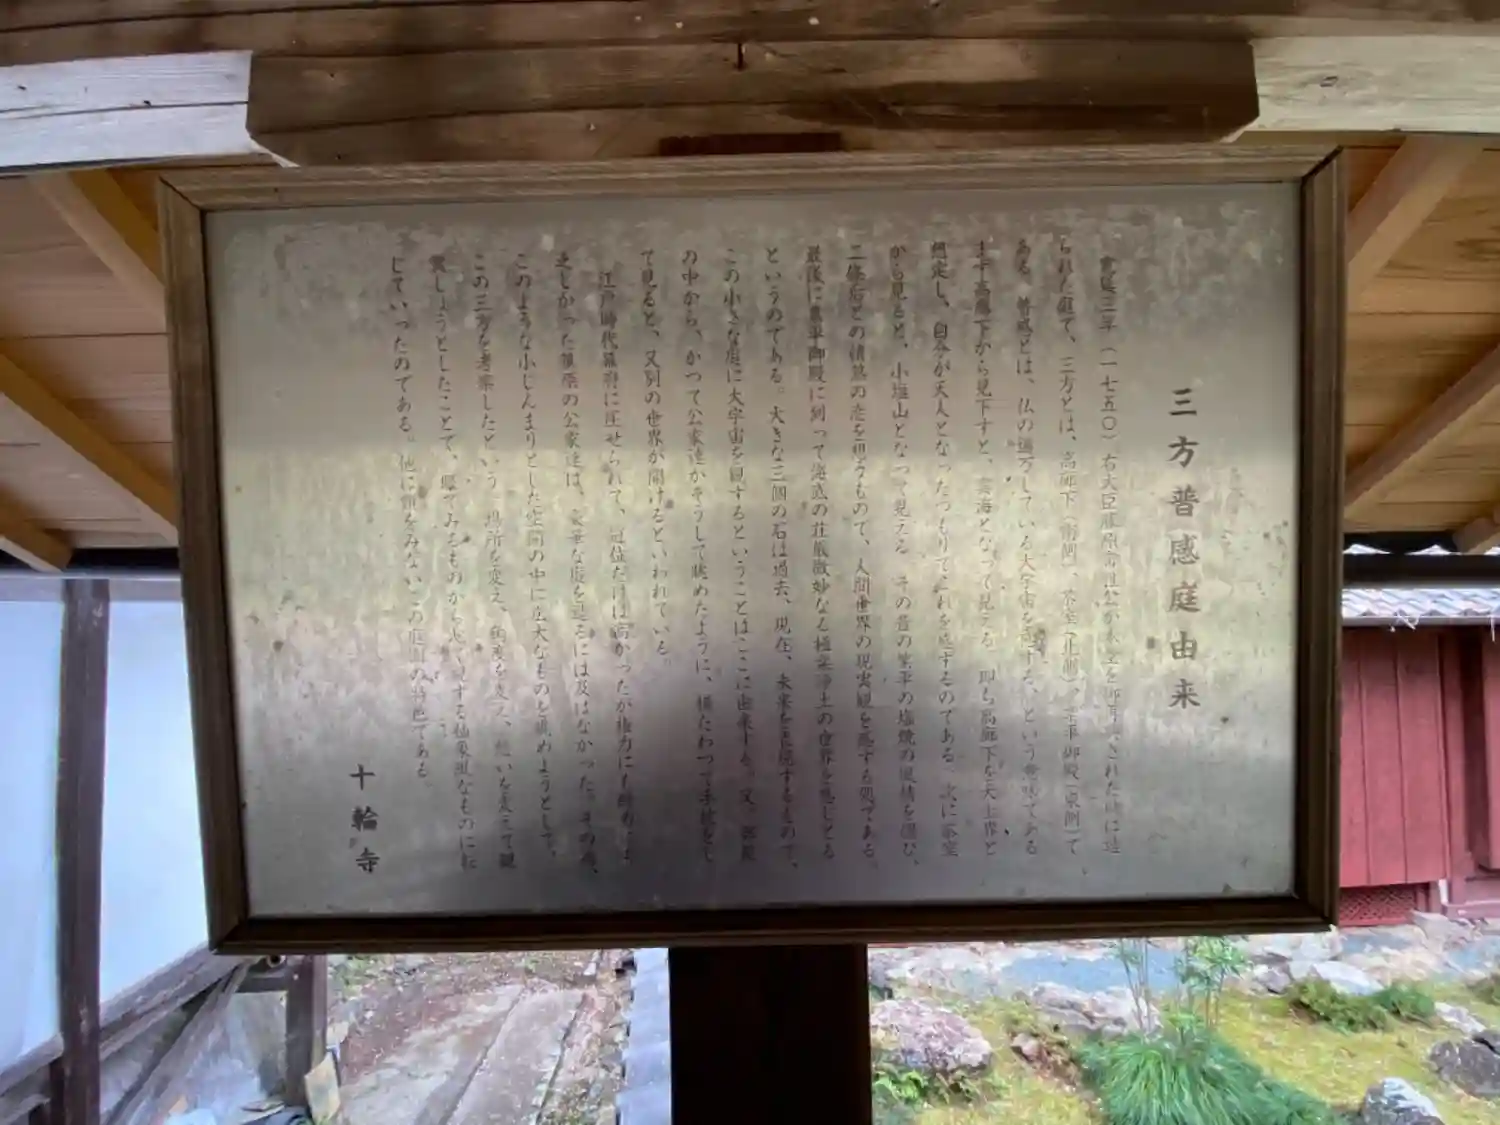 三方普感庭由来
寛延三年（一七五〇）右大臣藤原常雅公が本堂を御再興された時に造
られた庭で、三方とは、高廊下（南側）、茶室（北側）、業平御殿（東側）で
ある。普感とは、仏の遍万している大宇宙を感ずる、という意味である
まず高廊下から見下すと、雲海となって見える。即ち高廊下を天上界と
想定し、自分が天人となったつもりでこれを感ずるのである。次に茶室
から見ると、小塩山となって見える。その昔の業平の塩焼の風情を偲び、
二條后との情熱の恋を想うもので、人間世界の現実観を感ずる処である。
最後に業平御殿に到って海底の荘厳微妙なる極楽浄土の世界を感じとる
というのである。大きな三個の石は過去、現在、未来を表徴するもので、
この小さな庭に大宇宙を観するということはここに由来する。又、御殿
の中から、かつて公家達がそうして眺めたように、横たわって手枕をし
て見ると、又別の世界が開けるといわれている。
江戸時代幕府に圧せられて、冠位だけは高かったが権力にも財力にも
乏しかった華奢の公家達は、豪華な庭を造るには及ばなかった。その為、
このような小じんまりとした空間の中に広大なものを眺めようとして、
この三方を考案したという。場所を変え、角度を変え、想いを変えて観
賞しようとしたことで、眼でみるものから心で感ずる抽象風なものに転
じていったのである。他に類をみないこの庭園の特色である。
十輪寺